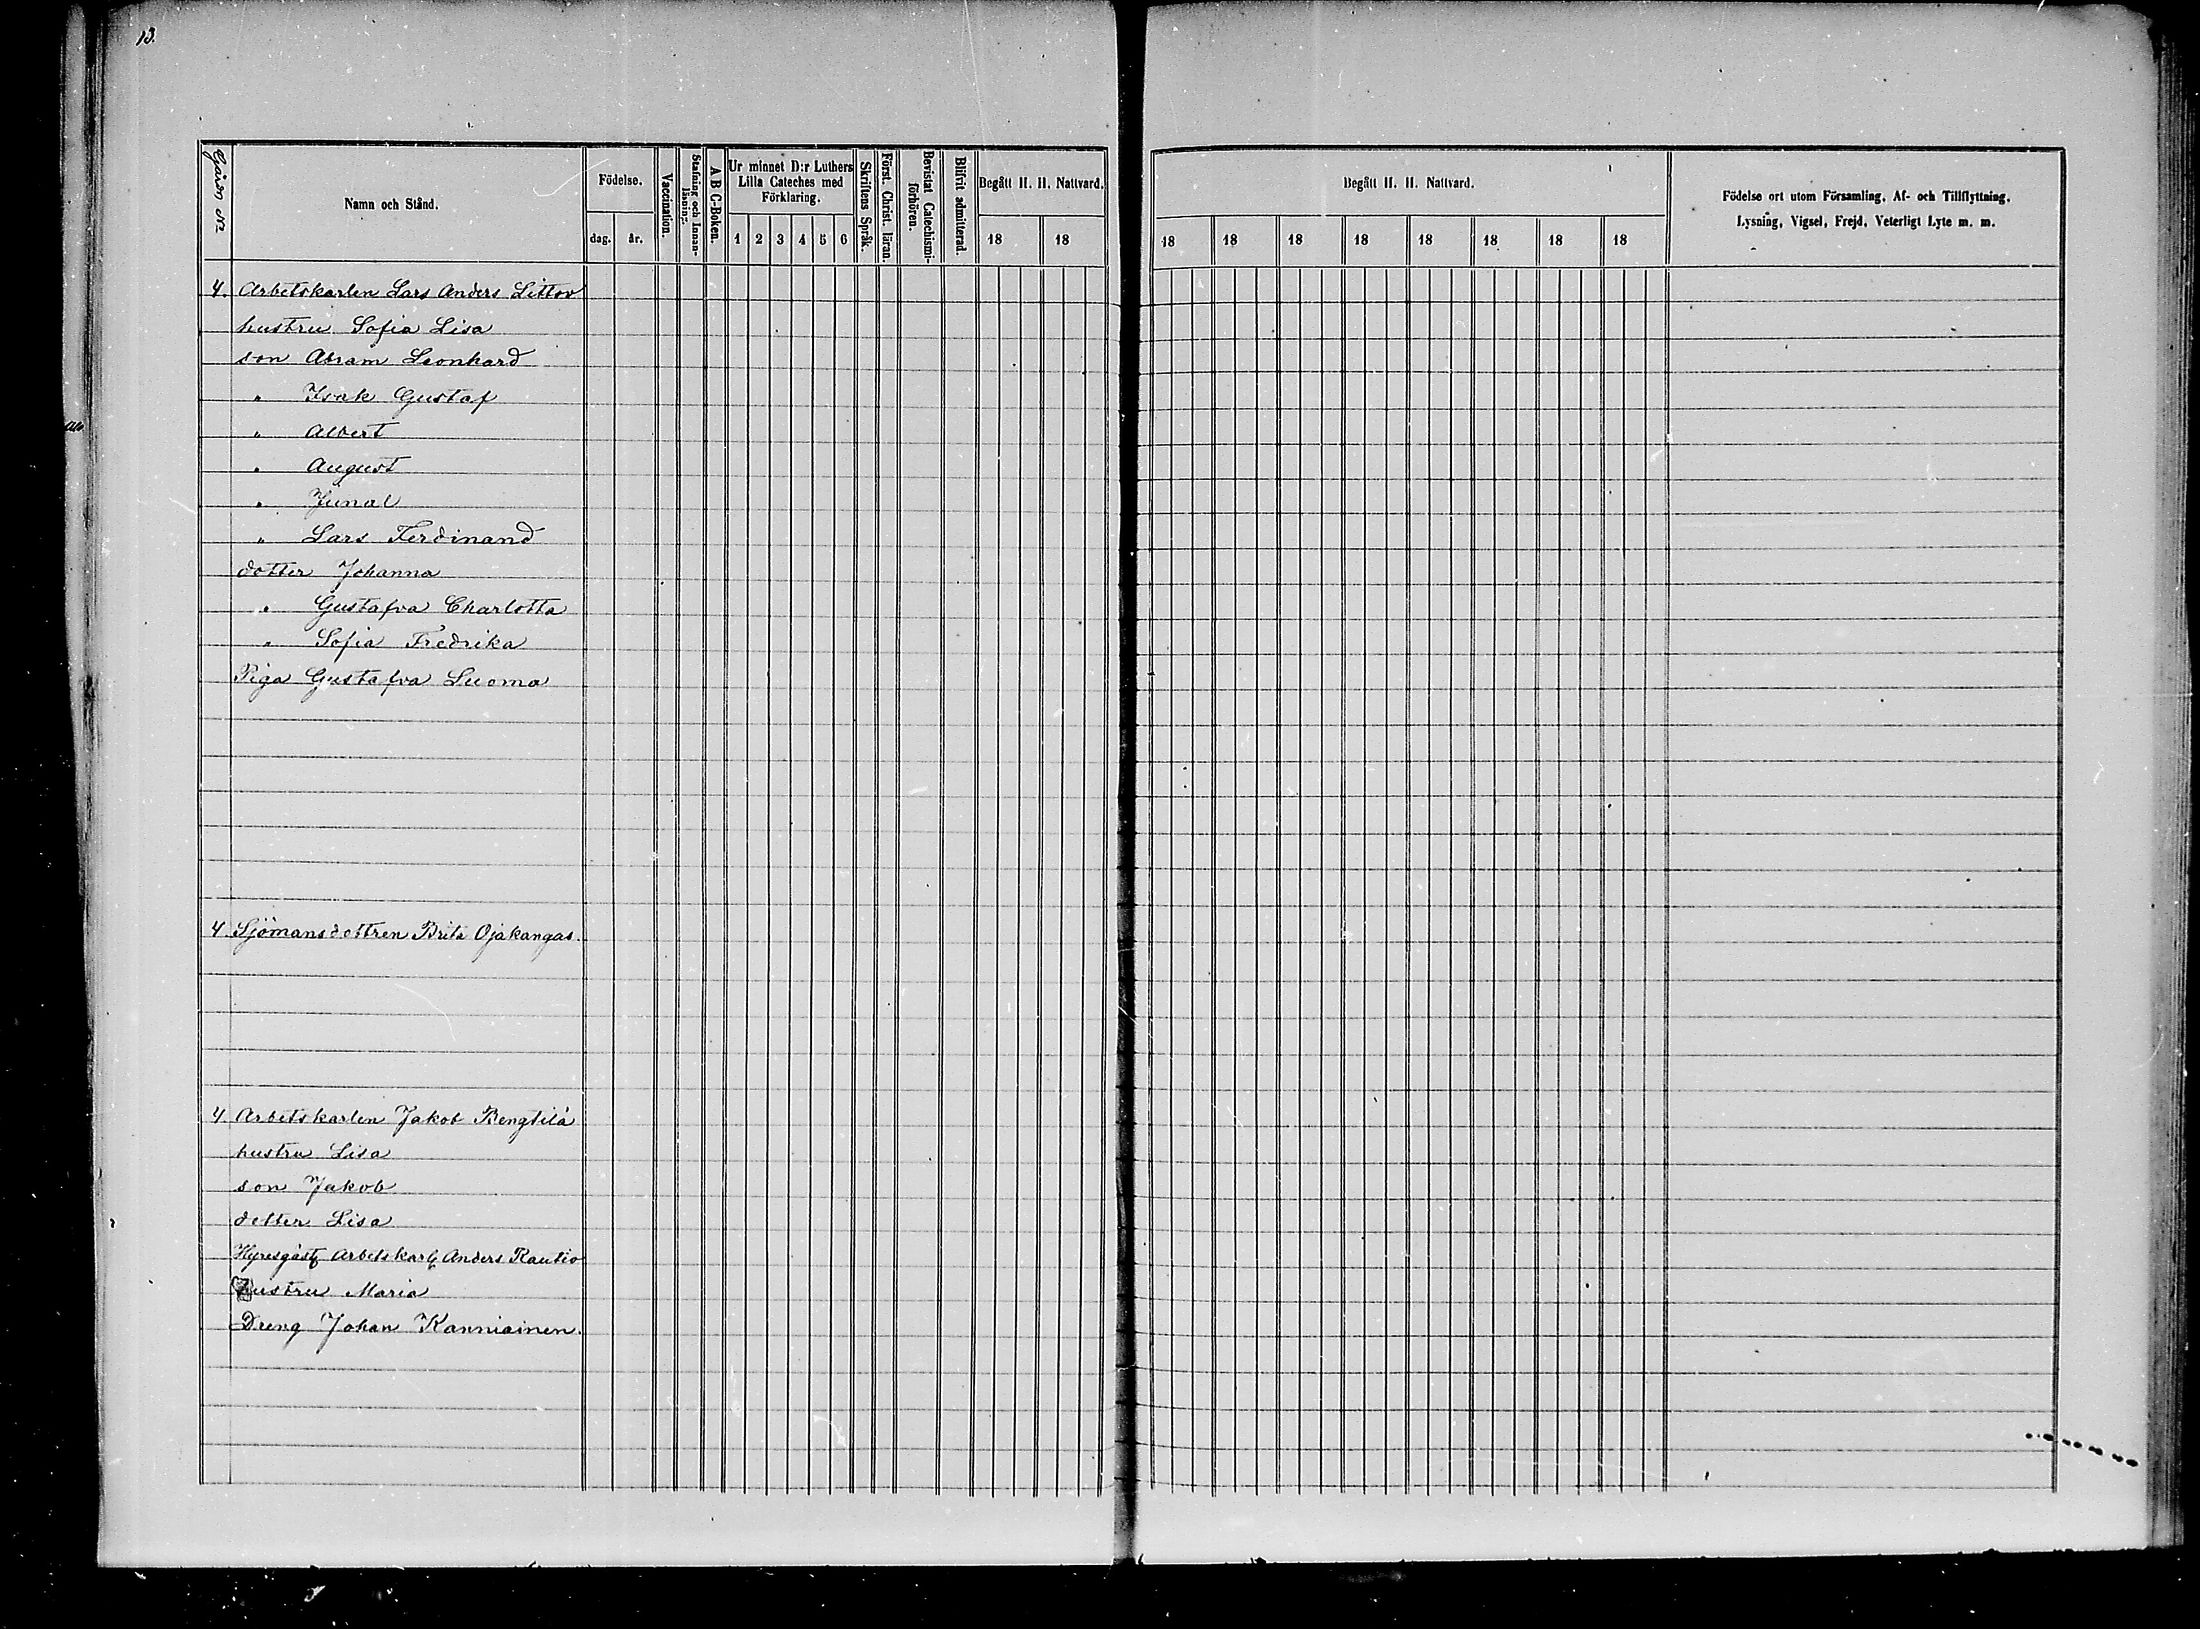 13.
Gårds No
Namn och Stånd.
Födelse.
dag.
år.
Vaccination.
Stafning och Innan-
läsning.
A B C-Boken.
Ur minnet D:r Luthers
Lilla Cateches med
Förklaring.
1 2 3 4 5 6
Skriftens Språk.
Först. Christ. läran.
Bevistat Catechismi-
förhören.
Blifvit admitterad.
Begått H. H. Nattvard.
18 18
Begått H. H. Nattvard.
18 18 18 18 18 18 18 18
Födelse ort utom Församling, Af- och Tillflyttning,
Lysning, Vigsel, Frejd, Veterligt Lyte m. m.
4. Arbetskarlen Lars Anders Littov
hustru Sofia Lisa
son Abram Leonhard
" Isak Gustaf
" Albert
" August
" Junal
" Lars Ferdinand
dotter Johanna
" Gustafva Charlotta
" Sofia Fredrika
Piga Gustafva Luoma
4. Sjömansdottren Brita Ojakangas.
4. Arbetskarlen Jakob Bengtilä
hustru Lisa
son Jakob
dotter Lisa
Anders Rautio
hustru Maria
Dreng Johan Kanniainen.